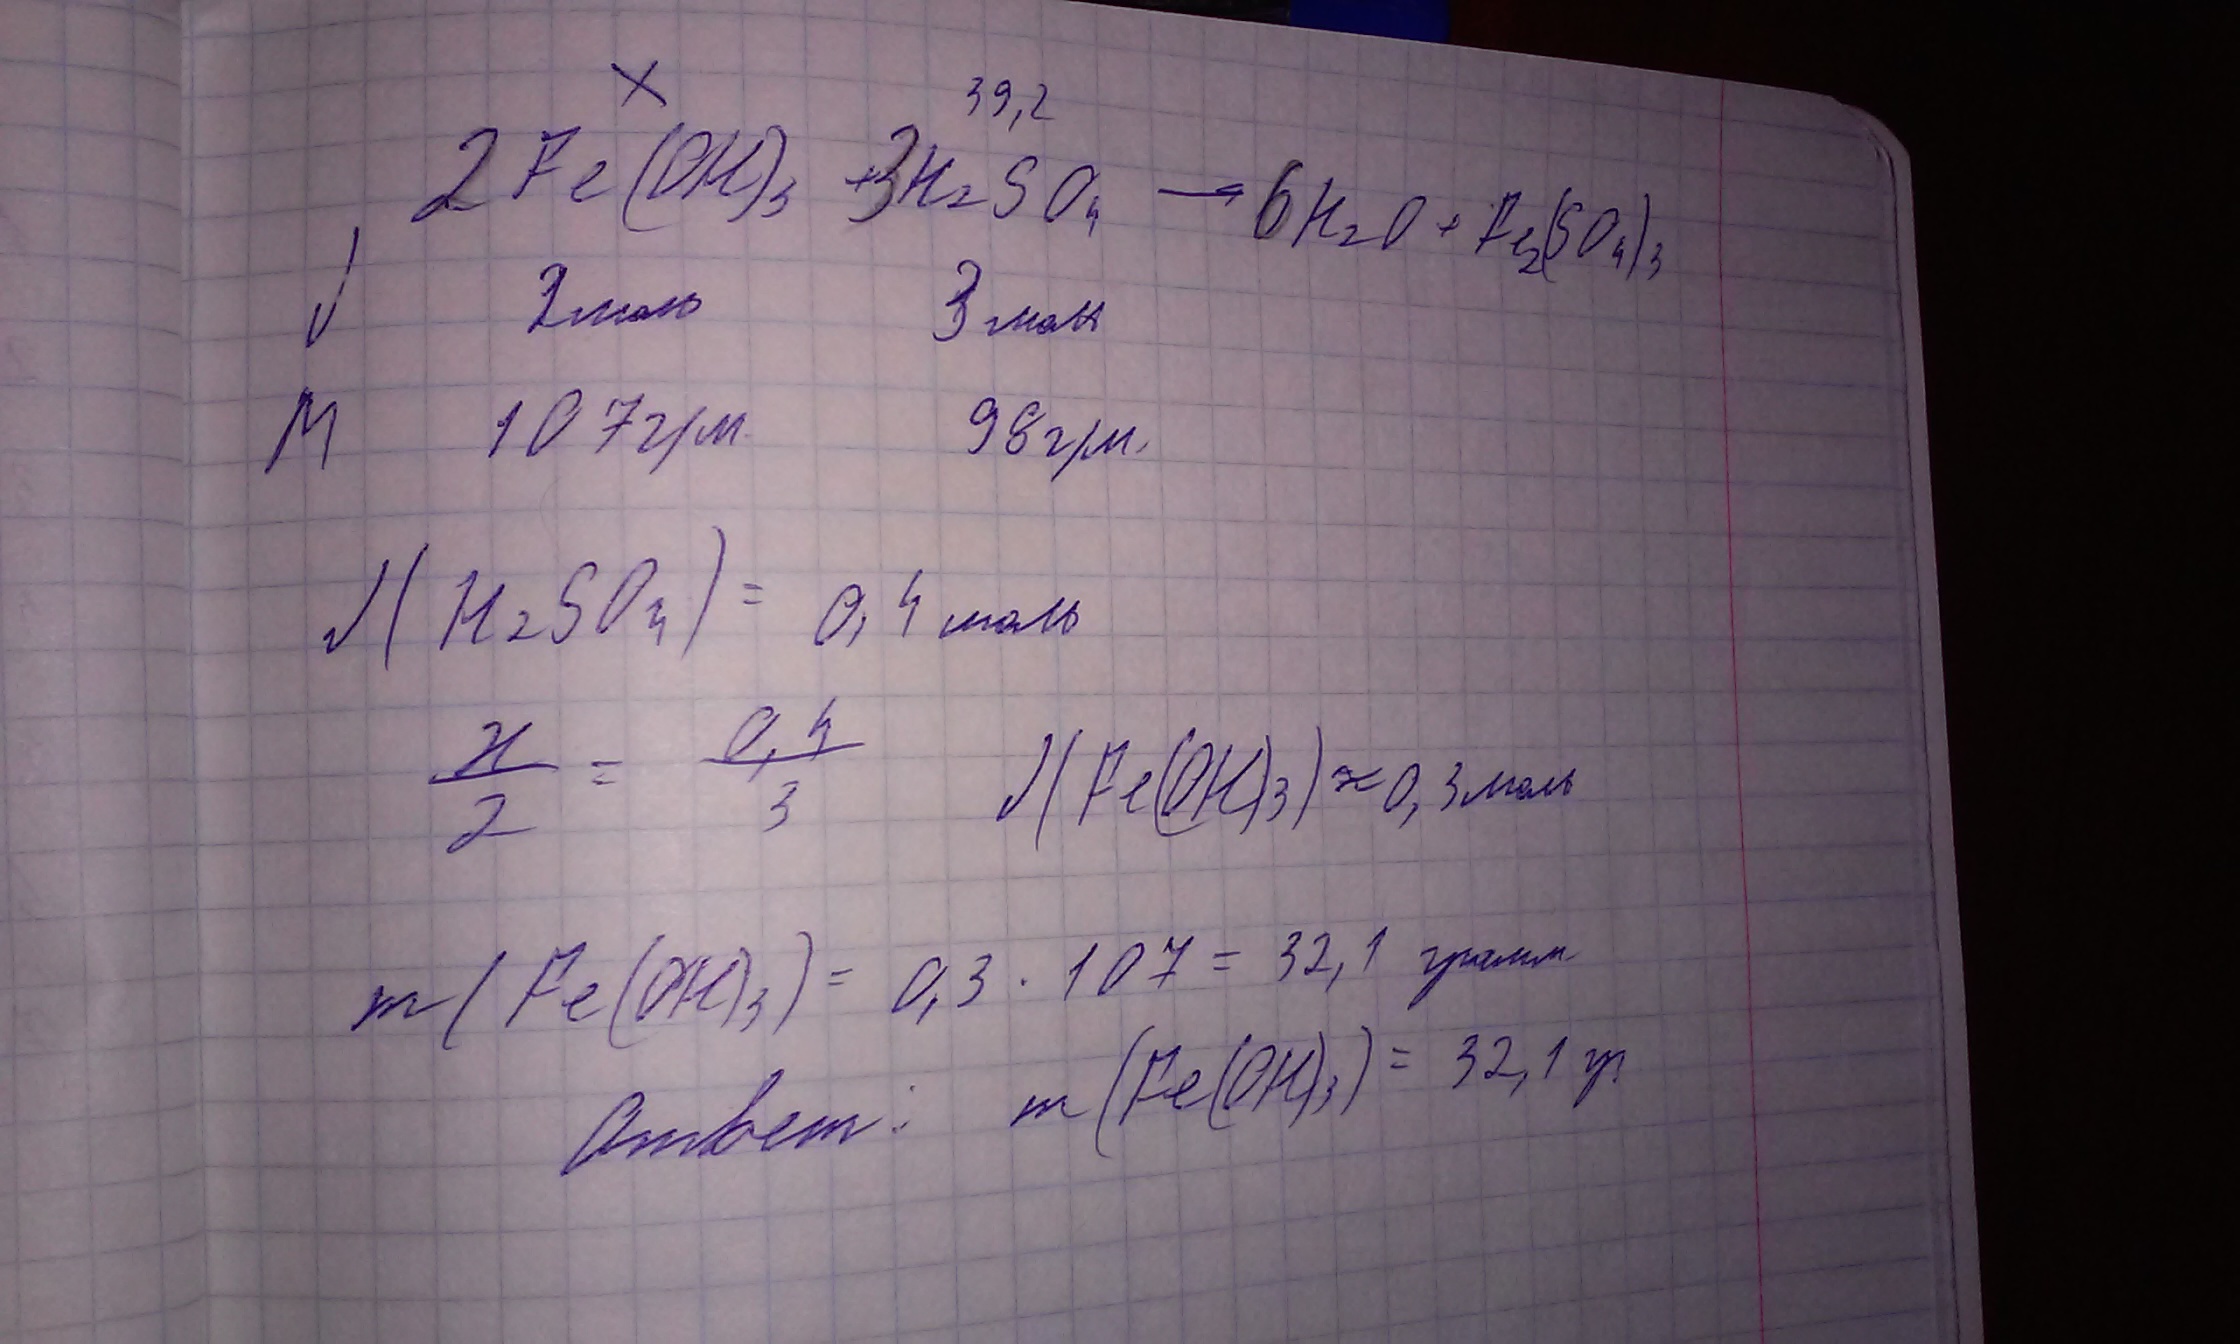 x 39,2
2Fe(OH)₃ + 3H₂SO₄ → 6H₂O + Fe₂(SO₄)₃
ν 2моль 3моль
M 107грм. 98грм.
ν(H₂SO₄) = 0,4 моль
x/2 = 0,4/3 ν(Fe(OH)₃) ≈ 0,3моль
m(Fe(OH)₃) = 0,3 · 107 = 32,1 грамм
Ответ: m(Fe(OH)₃) = 32,1 гр